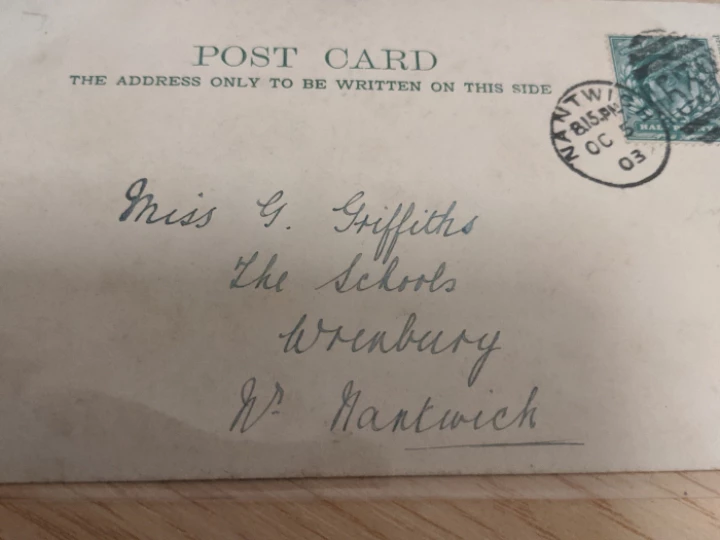 POST CARD
THE ADDRESS ONLY TO BE WRITTEN ON THIS SIDE
NANTWICH
8.15.PM
OC
03
Miss G. Griffiths
The Schools
Wrenbury
Nr Nantwich